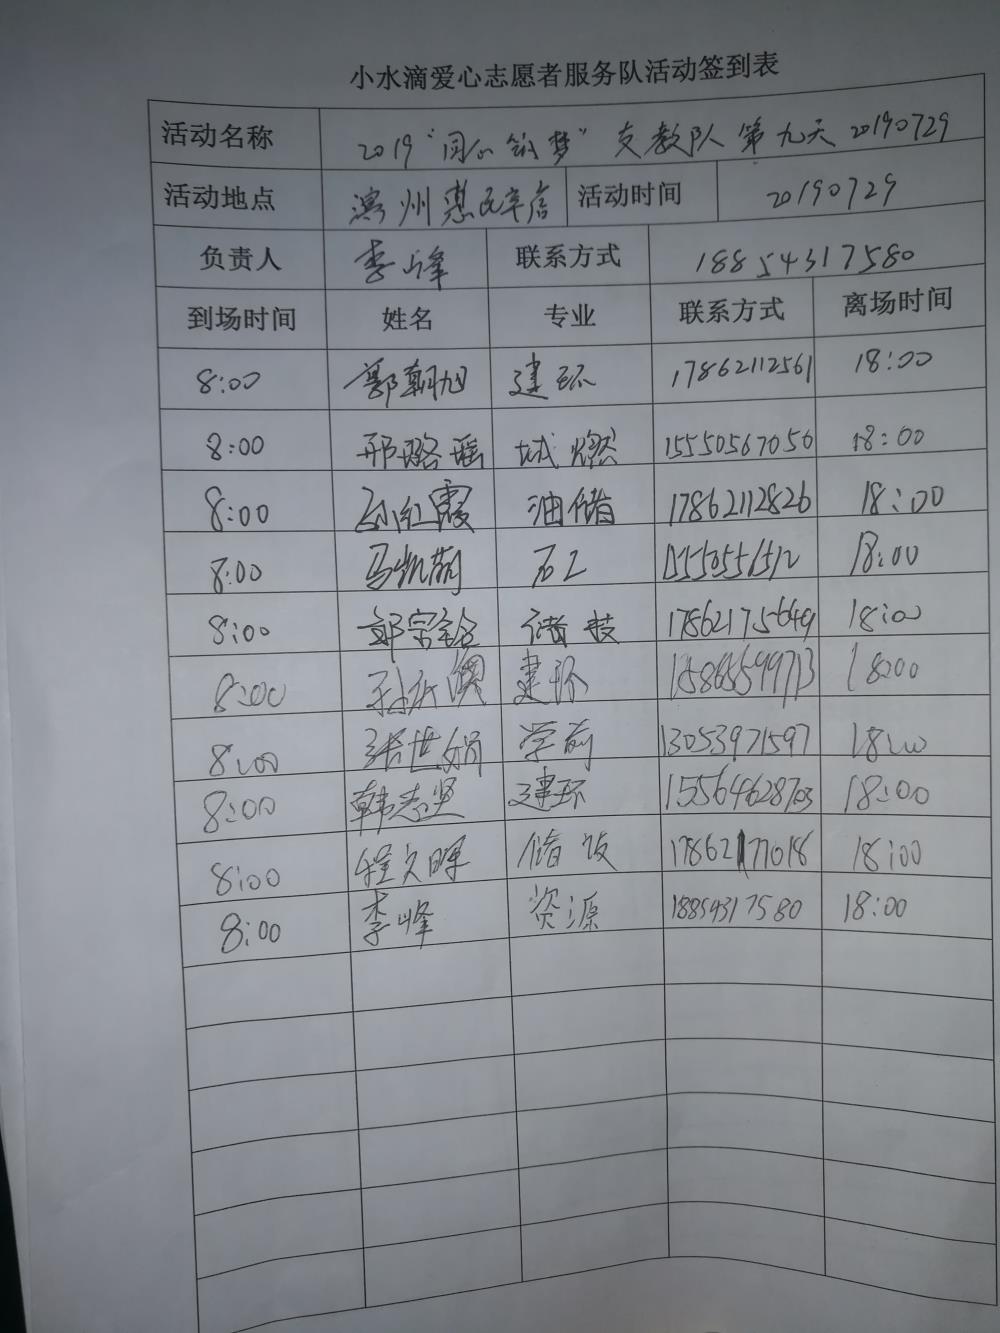 小水滴爱心志愿者服务队活动签到表
活动名称 2019“同心筑梦”支教队第九天20190729
活动地点 滨州惠民辛店 活动时间 20190729
负责人 李峰 联系方式 18854317580
到场时间 姓名 专业 联系方式 离场时间
8:00 郭朝旭 建环 17862112561 18:00
8:00 邢璐瑶 城燃 15550567056 18:00
8:00 孙红霞 油储 17862112826 18:00
8:00 马凯 石工 18:00
8:00 宗 储技 17862175649 18:00
8:00 孙 建环 18:00
8:00 张世娟 学前 13053971597 18:00
8:00 韩志坚 建环 15564628703 18:00
8:00 程文晖 储饭 17862177018 18:00
8:00 李峰 资源 18854317580 18:00